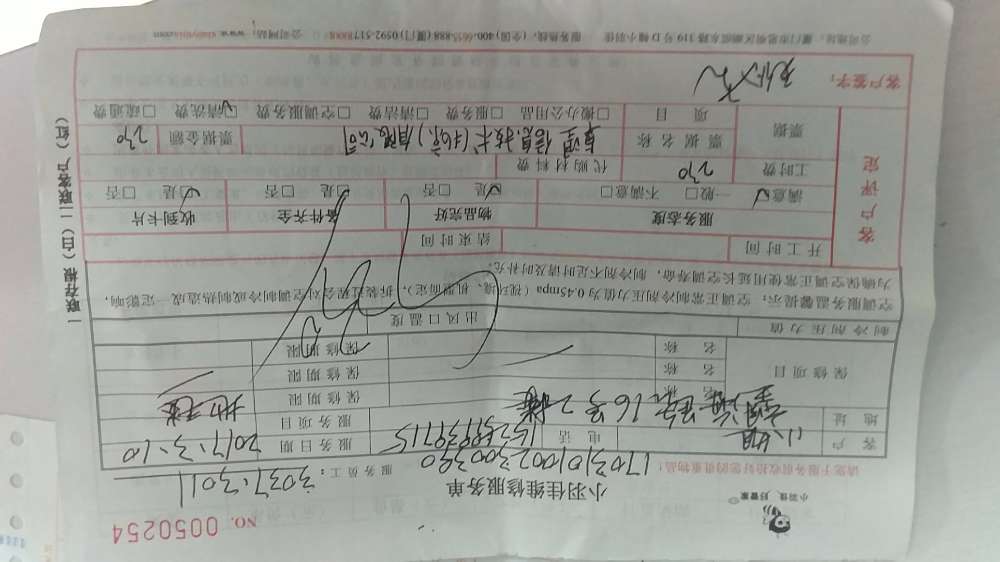 小羽佳 好管家
小羽佳维修服务单
NO. 0050254
1703101002300390
请您于服务前收拾好您的贵重物品! 服务员工: 3037.3011
客户 小姐 电话 服务日期 2017.3.10
地址 16号2楼 服务项目
保修项目 名称 保修期限
名称 保修期限
名称 保修期限
制冷剂压力值 出风口温度
空调服务温馨提示: 空调正常制冷剂压力值为0.45mpa (视环境、机型而定), 拆装过程会对空调制冷或制热造成一定影响,
为确保空调正常使用延长空调寿命, 制冷剂不足时请及时补充。
客户评定
开工时间 结束时间
服务态度 物品完好 备件齐全 收到卡片
满意☑ 一般□ 不满意□ 是☑ 否□ 是□ 否□ 是☑ 否□
工时费 270 代购材料费
票据 票据名称 信息技术 有限公司 票据金额 270
项目 □搬办公用品 □服务费 □清洁费 □空调服务费 ☑清洗费 □疏通费
客户签字:
公司地址: 厦门市思明区湖滨东路319号D幢小羽佳 服务热线: (全国)400-6655-888 (厦门)0592-5178008 公司网站: www.xiaoyujia.com
一联存根(白)二联客户(红)